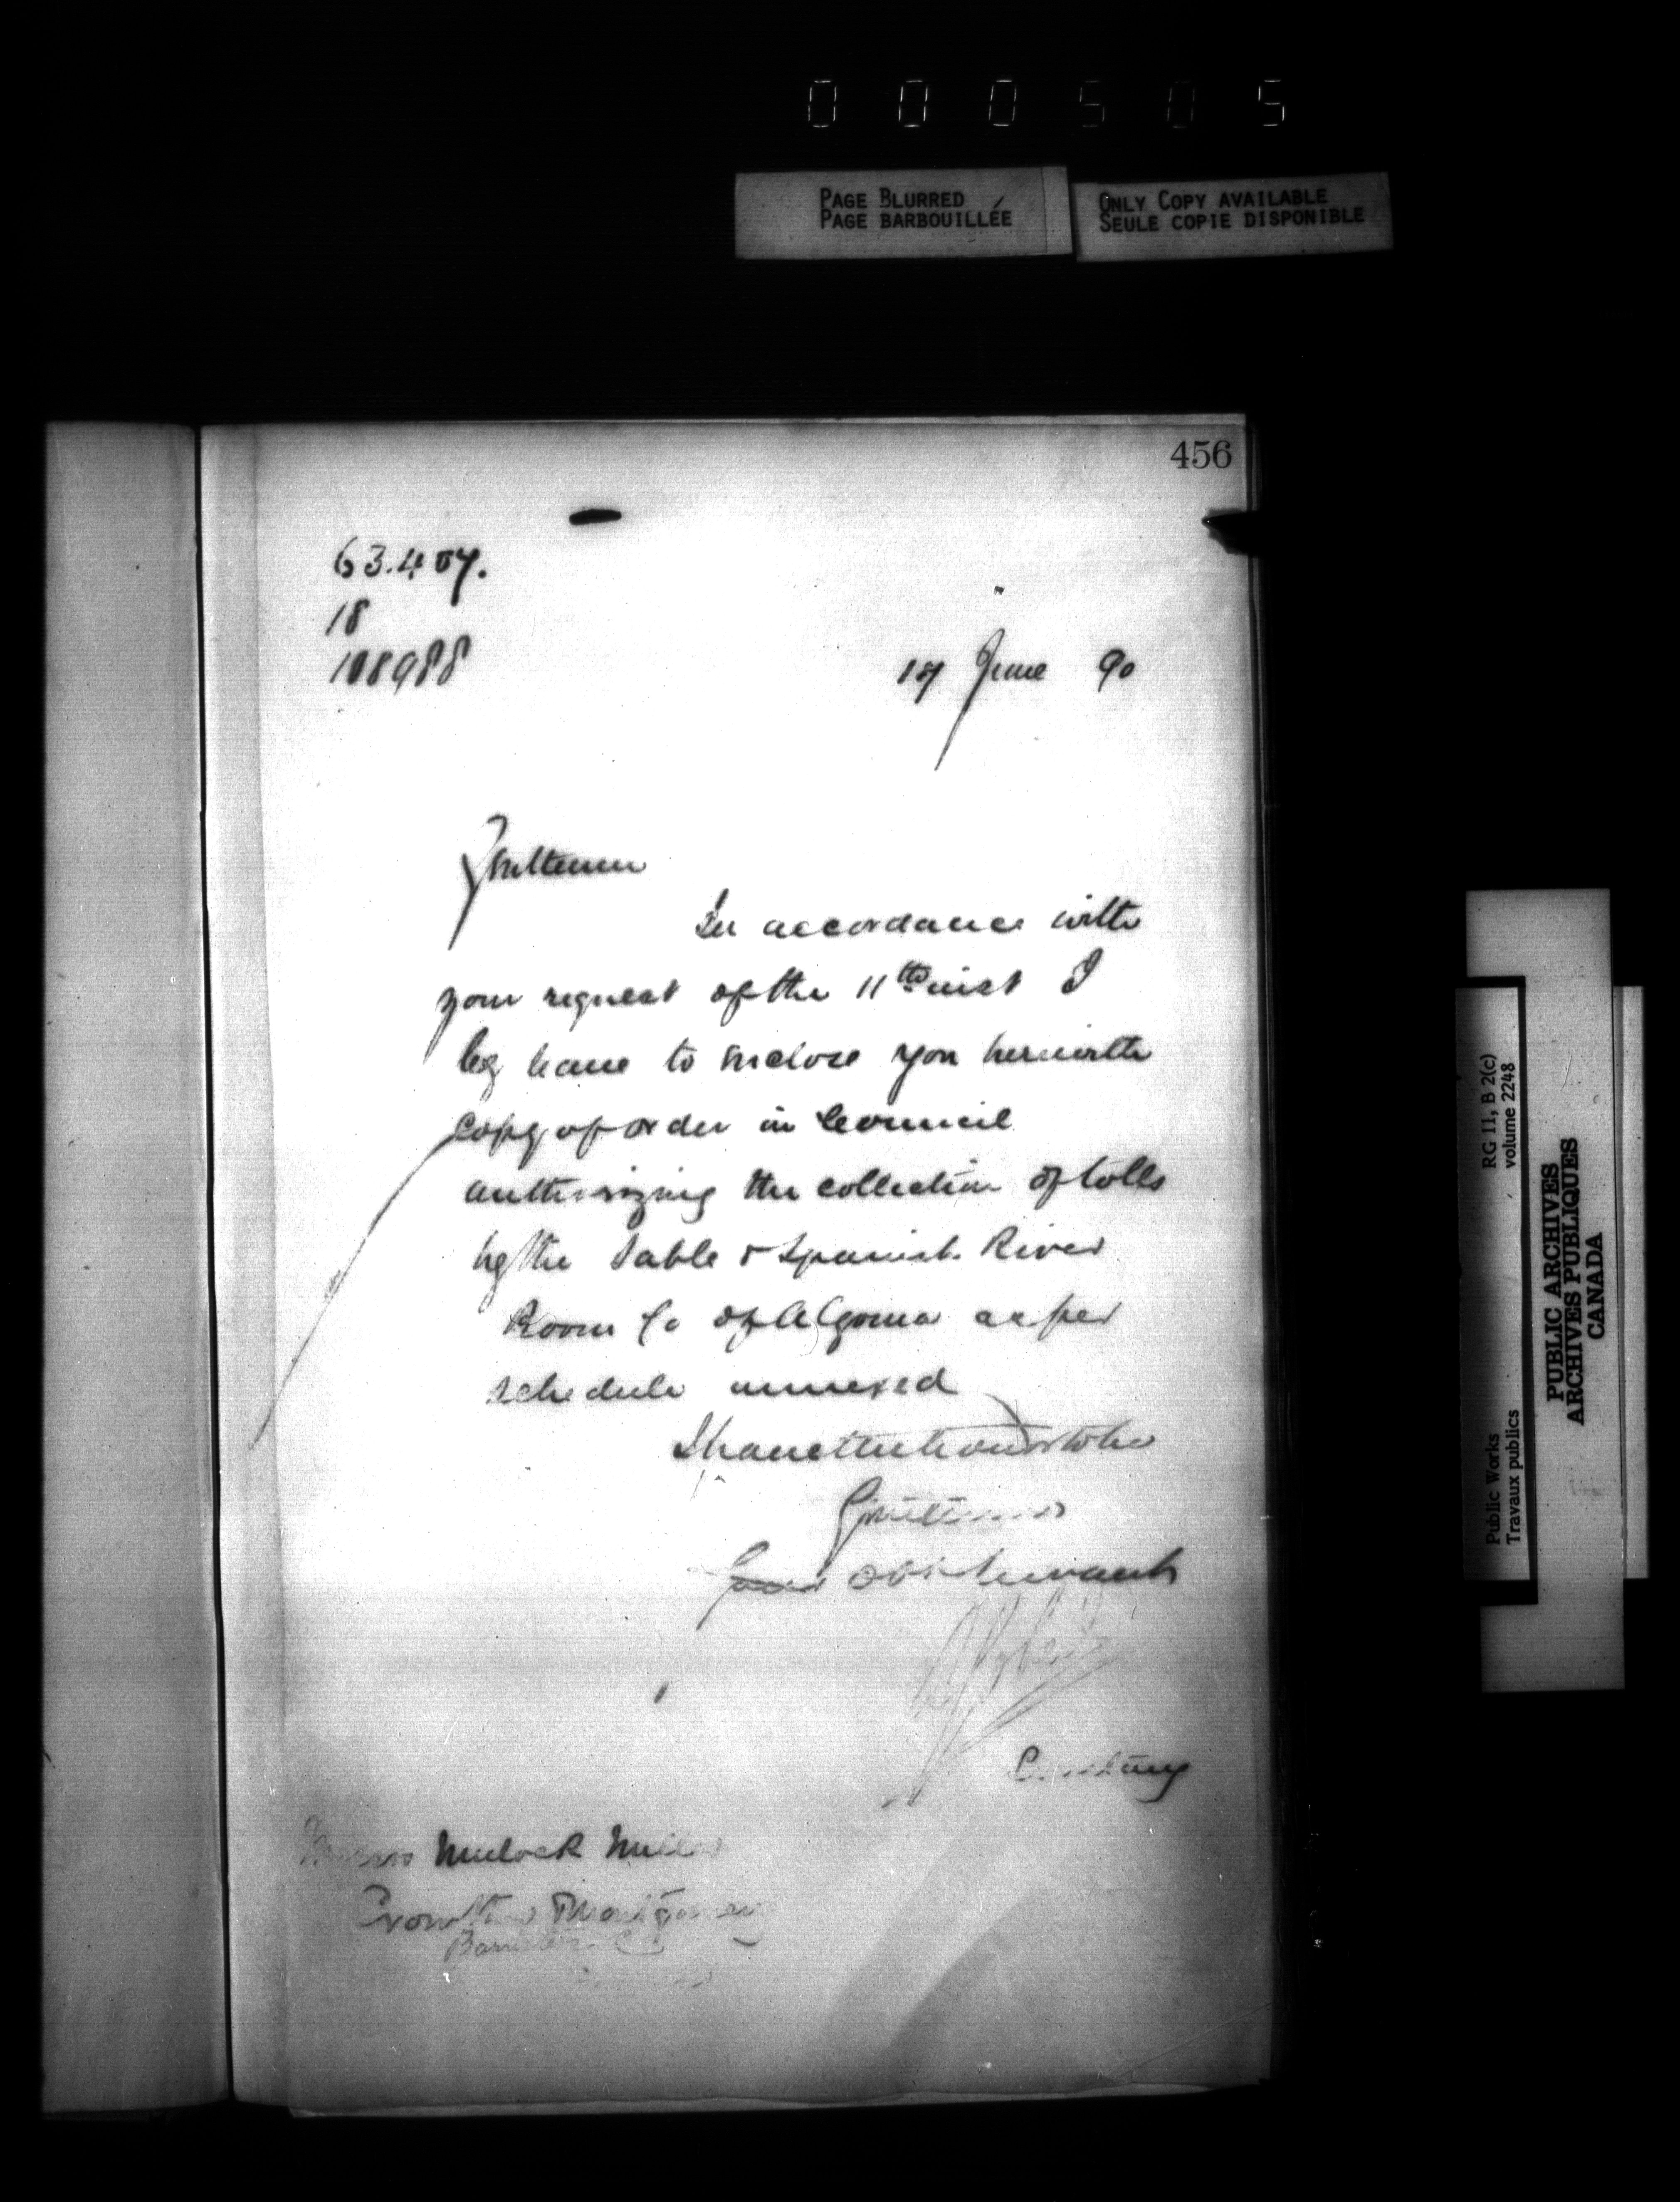 000505
PAGE BLURRED
PAGE BARBOUILLÉE
ONLY COPY AVAILABLE
SEULE COPIE DISPONIBLE
456
63.407.
18
108988
17 June 90
Gentlemen
In accordance with
your request of the 11th inst I
beg leave to inclose you herewith
copy of order in Council
authorizing the collection of tolls
by the Sable & Spanish River
Boom Co of Algoma as per
schedule annexed
I have the honor to be
Gentlemen
Your Obt Servant
Secretary
Messrs Mulock Miller
Crowther Montgomery
Barristers
RG 11, B 2(c)
volume 2248
Public Works
Travaux publics
PUBLIC ARCHIVES
ARCHIVES PUBLIQUES
CANADA